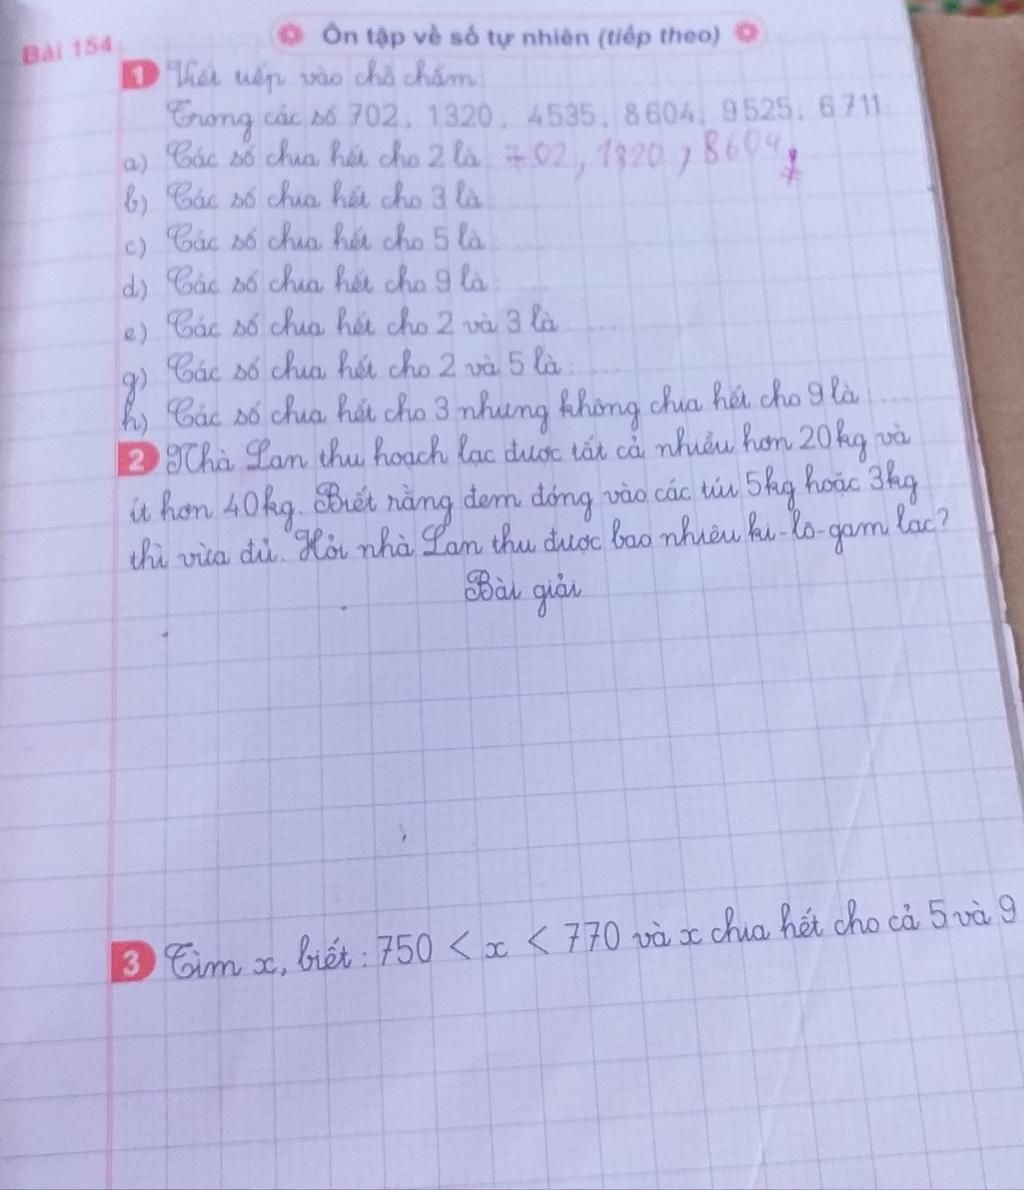 Bài 154
Ôn tập về số tự nhiên (tiếp theo)
1 Viết tiếp vào chỗ chấm:
Trong các số 702, 1320, 4535, 8604, 9525, 6711:
a) Các số chia hết cho 2 là 702, 1320, 8604,
b) Các số chia hết cho 3 là
c) Các số chia hết cho 5 là
d) Các số chia hết cho 9 là
e) Các số chia hết cho 2 và 3 là ....
g) Các số chia hết cho 2 và 5 là ....
h) Các số chia hết cho 3 nhưng không chia hết cho 9 là ....
2 Nhà Lan thu hoạch lạc được tất cả nhiều hơn 20kg và
ít hơn 40kg. Biết rằng đem đóng vào các túi 5kg hoặc 3kg
thì vừa đủ. Hỏi nhà Lan thu được bao nhiêu ki-lô-gam lạc?
Bài giải
3 Tìm x, biết: 750 < x < 770 và x chia hết cho cả 5 và 9